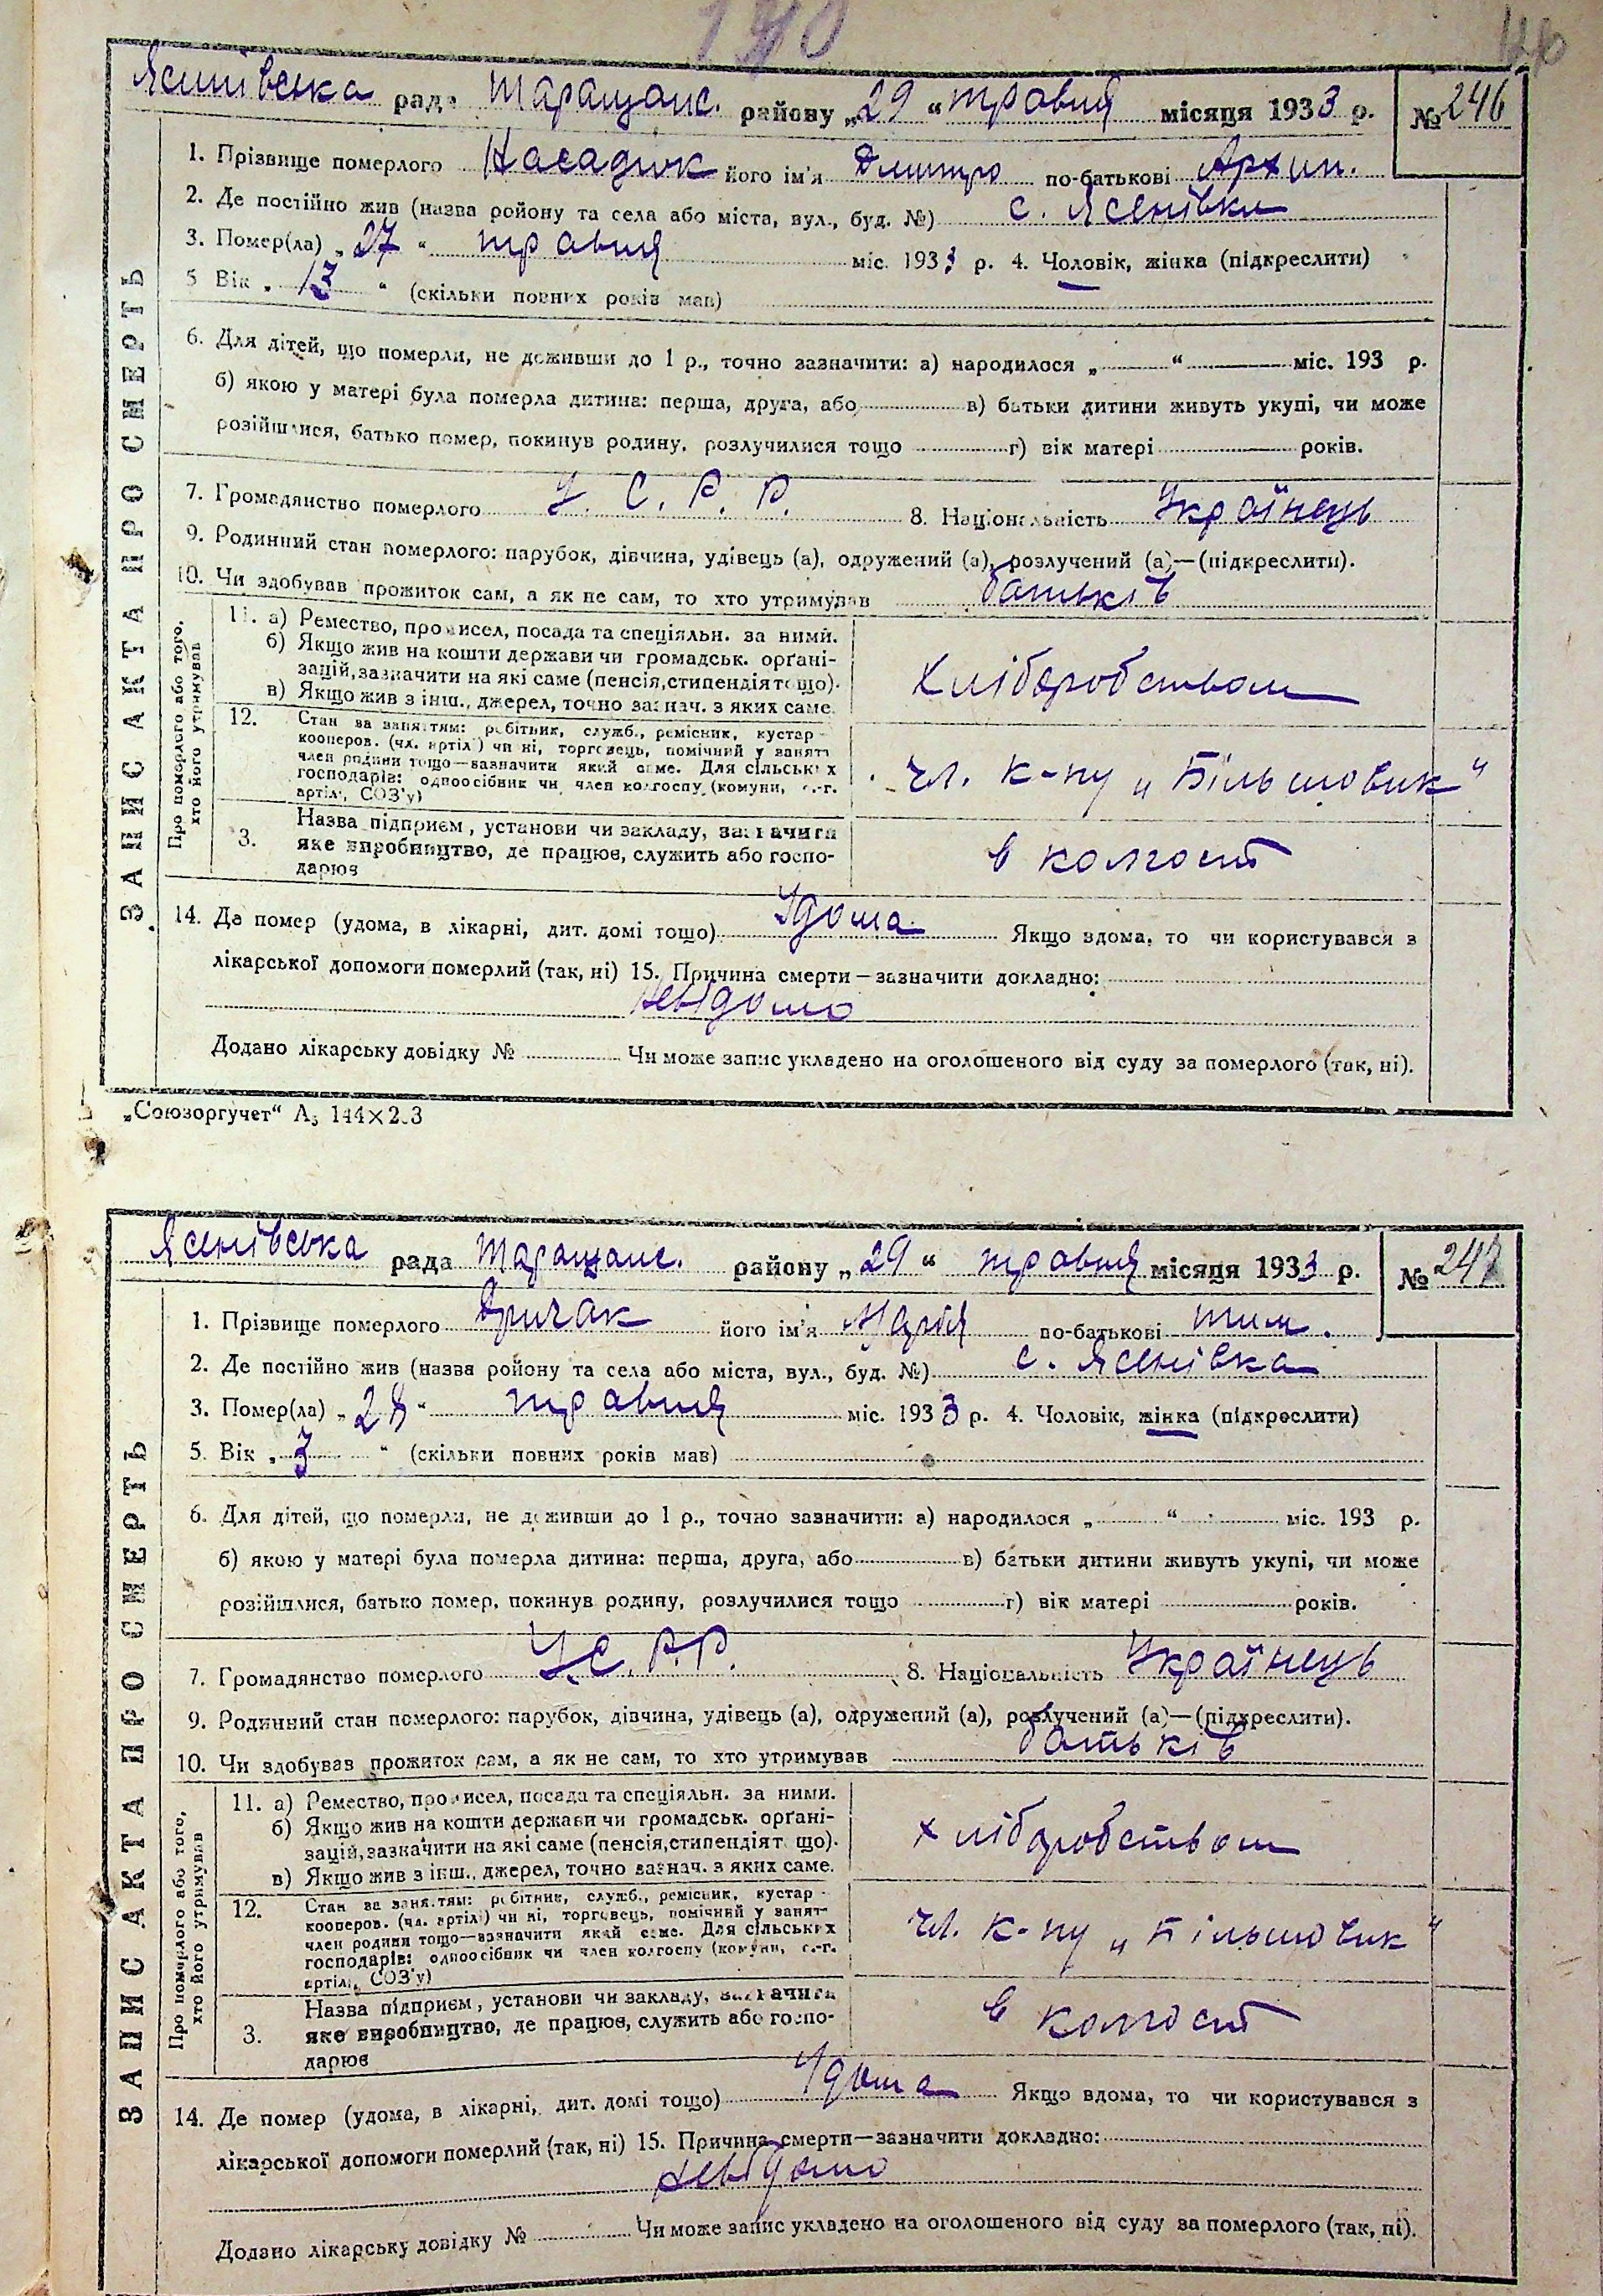 190
Ясенівська рада Таращанс. району „29“ травня місяця 1933 р. № 246
1. Прізвище померлого Насадюк його ім'я Дмитро по-батькові Архип.
2. Де постійно жив (назва ройону та села або міста, вул., буд. №) с. Ясенівки
3. Помер(ла) „27“ травня міс. 1933 р. 4. Чоловік, жінка (підкреслити)
5 Вік „13“ (скільки повних років мав)
6. Для дітей, що померли, не доживши до 1 р., точно зазначити: а) народилося „ “ міс. 193 р.
б) якою у матері була померла дитина: перша, друга, або в) батьки дитини живуть укупі, чи може
розійшлися, батько помер, покинув родину, розлучилися тощо г) вік матері років.
7. Громадянство померлого У. С. Р. Р. 8. Національність Українець
9. Родинний стан померлого: парубок, дівчина, удівець (а), одружений (а), розлучений (а)—(підкреслити).
10. Чи здобував прожиток сам, а як не сам, то хто утримував батьків
ЗАПИС АКТА ПРО СМЕРТЬ
Про померлого або того,
хто його утримував
11. а) Ремество, промисел, посада та спеціяльн. за ними.
б) Якщо жив на кошти держави чи громадськ. орґані-
зацій, зазначити на які саме (пенсія, стипендія тощо).
в) Якщо жив з інш., джерел, точно зазнач. з яких саме.
Хліборобством
12. Стан за заняттям: робітник, служб., ремісник, кустар
кооперов. (чл. артіл.) чи ні, торговець, помічний у занятт
член родини тощо—зазначити який саме. Для сільських
господарів: одноосібник чи член колгоспу (комуни, с.-г.
артіл., СОЗ'у)
чл. к-пу „Більшовик“
3. Назва підприєм, установи чи закладу, зазначити
яке виробництво, де працює, служить або госпо-
дарює
в колгоспі
14. Де помер (удома, в лікарні, дит. домі тощо) Удома Якщо вдома, то чи користувався з
лікарської допомоги померлий (так, ні) 15. Причина смерти—зазначити докладно:
невідомо
Додано лікарську довідку № Чи може запис укладено на оголошеного від суду за померлого (так, ні).
„Союзоргучет“ А5 144×203
Ясенівська рада Таращанс. району „29“ травня місяця 1933 р. № 247
1. Прізвище померлого його ім'я Марія по-батькові Тим.
2. Де постійно жив (назва ройону та села або міста, вул., буд. №) с. Ясенівка
3. Помер(ла) „28“ травня міс. 1933 р. 4. Чоловік, жінка (підкреслити)
5. Вік „3“ (скільки повних років мав)
6. Для дітей, що померли, не доживши до 1 р., точно зазначити: а) народилося „ “ міс. 193 р.
б) якою у матері була померла дитина: перша, друга, або в) батьки дитини живуть укупі, чи може
розійшлися, батько помер, покинув родину, розлучилися тощо г) вік матері років.
7. Громадянство померлого У.С.Р.Р. 8. Національність Українець
9. Родинний стан померлого: парубок, дівчина, удівець (а), одружений (а), розлучений (а)—(підкреслити).
10. Чи здобував прожиток сам, а як не сам, то хто утримував батьків
ЗАПИС АКТА ПРО СМЕРТЬ
Про померлого або того,
хто його утримував
11. а) Ремество, промисел, посада та спеціяльн. за ними.
б) Якщо жив на кошти держави чи громадськ. орґані-
зацій, зазначити на які саме (пенсія, стипендія тощо).
в) Якщо жив з інш., джерел, точно зазнач. з яких саме.
хліборобством
12. Стан за заняттям: робітник, служб., ремісник, кустар
кооперов. (чл. артіл.) чи ні, торговець, помічний у занятт
член родини тощо—зазначити який саме. Для сільських
господарів: одноосібник чи член колгоспу (комуни, с.-г.
артіл., СОЗ'у)
чл. к-пу „Більшовик“
3. Назва підприєм, установи чи закладу, зазначити
яке виробництво, де працює, служить або госпо-
дарює
в колгоспі
14. Де помер (удома, в лікарні, дит. домі тощо) Удома Якщо вдома, то чи користувався з
лікарської допомоги померлий (так, ні) 15. Причина смерти—зазначити докладно:
невідомо
Додано лікарську довідку № Чи може запис укладено на оголошеного від суду за померлого (так, ні).